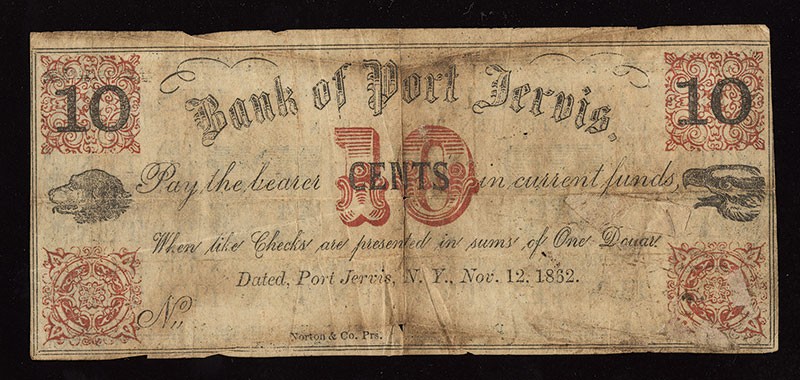 10 10
Bank of Port Jervis,
Pay the bearer 10 CENTS in current funds,
When like Checks are presented in sums of One Dollar
Dated, Port Jervis, N. Y., Nov. 12, 1862.
No,,
Norton & Co. Prs.